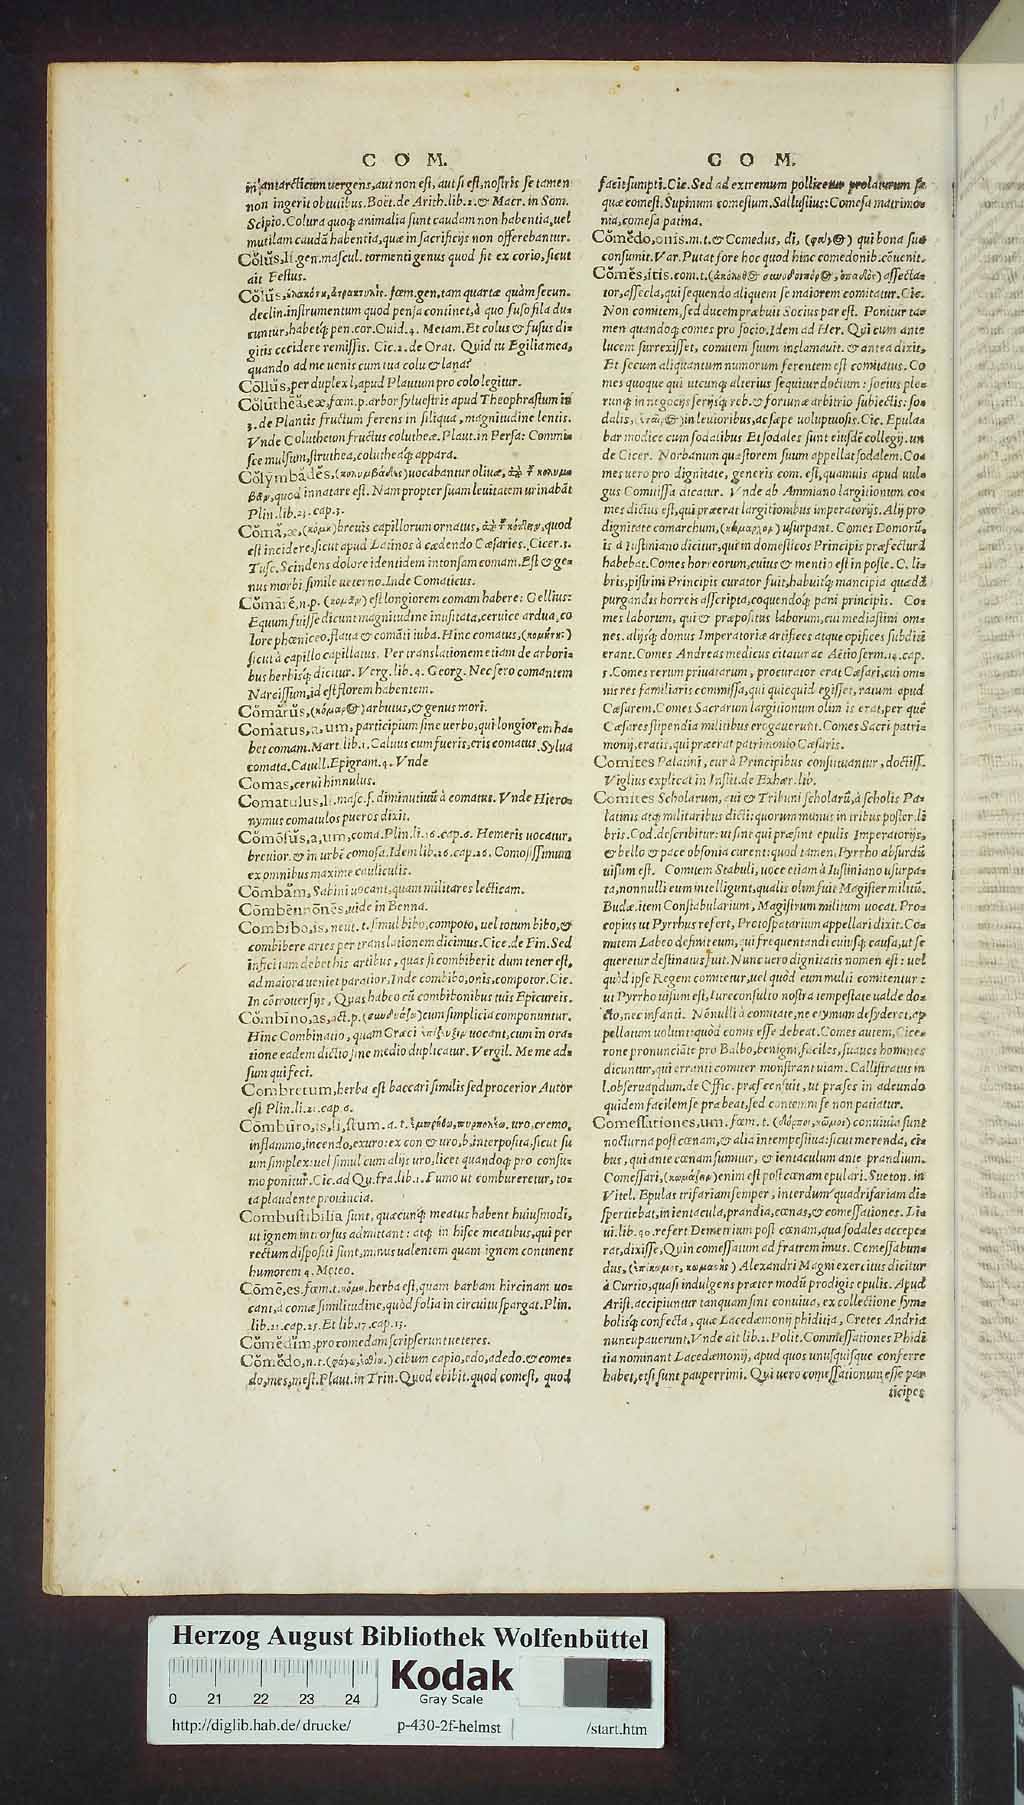 C O M.
in antarcticum uergens, aut non est, aut si est, nostris se tamen
non ingerit obtutibus. Boët. de Arith. lib. 2. & Macr. in Som.
Scipio. Colura quoq; animalia sunt caudam non habentia, uel
mutilam caudā habentia, quæ in sacrificijs non offerebantur.
Cŏlŭs, li. gen. mascul. tormenti genus quod fit ex corio, sicut
ait Festus.
Cŏlŭs, fœm. gen. tam quartæ quàm secun-
declin. instrumentum quod pensa continet, à quo fuso fila du-
cuntur, habetq; pen. cor. Ouid. 4. Metam. Et colus & fusus di-
gitis cecidere remissis. Cic. 2. de Orat. Quid tu Egilia mea,
quando ad me uenis cum tua colu & lana?
Cōllŭs, per duplex l, apud Plautum pro colo legitur.
Cŏlŭthĕă, eæ, fœm. p. arbor syluestris apud Theophrastum in
3. de Plantis fructum ferens in siliqua, magnitudine lentis.
Vnde Colutheton fructus colutheæ. Plaut. in Persa: Commi-
sce mulsum, struthea, colutheaq; appara.
Cŏlymbădĕs, (κολυμβάδες) uocabantur oliuæ, κολυμ-
βᾶν, quod innatare est. Nam propter suam leuitatem urinabāt
Plin. lib. 23. cap. 3.
Cŏmă, æ, (κόμη) breuis capillorum ornatus, quod
est incidere, sicut apud Latinos à cædendo Cæsaries. Cicer. 3.
Tusc. Scindens dolore identidem intonsam comam. Est & ge-
nus morbi simile ueterno. Inde Comaticus.
Cŏmārĕ, n. p. (κομᾶν) est longiorem comam habere: Gellius:
Equum fuisse dicunt magnitudine inusitata, ceruice ardua, co
lore phœniceo, flaua & comāti iuba. Hinc comatus, (κομήτης)
sicut à capillo capillatus. Per translationem etiam de arbori-
bus herbisq; dicitur. Verg. lib. 4. Georg. Nec sero comantem
Narcissum, id est florem habentem.
Cŏmărŭs, (κόμαρος) arbutus, & genus mori.
Comatus, a, um, participium sine uerbo, qui longiorem ha-
bet comam. Mart. lib. 1. Caluus cum fueris, eris comatus. Sylua
comata. Catull. Epigram. 4. Vnde
Comas, cerui hinnulus.
Comatulus, li. masc. s. diminutiuū à comatus. Vnde Hiero-
nymus comatulos pueros dixit.
Cŏmōsŭs, a, um, coma. Plin. li. 16. cap. 6. Hemeris uocatur,
breuior, & in urbē comosa. Idem lib. 26. cap. 26. Comosissimum
ex omnibus maxime cauliculis.
Cōmbăm, Sabini uocant, quam militares lecticam.
Cōmbēnnōnĕs, uide in Benna.
Combibo, is, neut. t. simul bibo, compoto, uel totum bibo, &
combibere artes per translationem dicimus. Cice. de Fin. Sed
infici tam debet his artibus, quas si combiberit dum tener est,
ad maiora ueniet paratior. Inde combibo, onis, compotor. Cic.
In cōtrouersijs, Quas habeo cū combibonibus tuis Epicureis.
Cōmbīno, as, act. p. (συνδυάζω) cum simplicia componuntur.
Hinc Combinatio, quam Græci uocant, cum in ora-
tione eadem dictio sine medio duplicatur. Vergil. Me me ad-
sum qui feci.
Combretum, herba est baccari similis sed procerior Autor
est Plin. li. 21. cap. 6.
Cōmbūro, is, si, stum. a. t. ἐμπρήθω, πυρπολέω. uro, cremo,
inflammo, incendo, exuro: ex con & uro, b. interposita, sicut su
um simplex: uel simul cum alijs uro, licet quandoq; pro consu-
mo ponitur. Cic. ad Qu. fra. lib. 1. Fumo ut combureretur, to-
ta plaudente prouincia.
Combustibilia sunt, quæcunq; meatus habent huiusmodi,
ut ignem introrsus admittant: atq; in hisce meatibus, qui per
rectum dispositi sunt, minus ualentem quam ignem continent
humorem 4. Meteo.
Cŏmē, es. fœm. t. κόμη. herba est, quam barbam hircinam uo-
cant, à comæ similitudine, quòd folia in circuitu spargat. Plin.
lib. 21. cap. 25. Et lib. 27. cap. 13.
Cŏmĕdĭm, pro comedam scripserunt ueteres.
Cŏmĕdo, n. t. (φάγω, ἐσθίω) cibum capio, edo, adedo. & come-
do, mes, mest. Plaut. in Trin. Quod ebibit, quod comest, quod
C O M.
facit sumpti. Cic. Sed ad extremum pollicetur prolaturum se
quæ comest. Supinum comesum. Sallustius: Comesa matrimo-
nia, comesa patina.
Cŏmĕdo, onis. m. t. & Comedus, di, qui bona sua
consumit. Var. Putat fore hoc quod hinc comedonib. cōuenit.
Cŏmĕs, itis. com. t. (ἀκόλουθος συνοδοιπόρος, ὀπαδὸς) assecta-
tor, assecla, qui sequendo aliquem se maiorem comitatur. Cic.
Non comitem, sed ducem præbuit Socius par est. Ponitur ta-
men quandoq; comes pro socio. Idem ad Her. Qui cum ante
lucem surrexisset, comitem suum inclamauit. & antea dixit,
Et secum aliquantum numorum ferentem est comitatus. Co
mes quoque qui utcunq; alterius sequitur ductum: socius ple-
runq; in negocijs serijsq; reb. & fortunæ arbitrio subiectis: so-
dalis, in leuioribus, ac sæpe uoluptuosis. Cic. Epula-
bar modice cum sodalibus Et sodales sunt eiusdē collegij. un
de Cicer. Norbanum quæstorem suum appellat sodalem. Co-
mes uero pro dignitate, generis com. est, quamuis apud uul-
gus Comitissa dicatur. Vnde ab Ammiano largitionum co-
mes dictus est, qui præerat largitionibus imperatorijs. Alij pro
dignitate comarchum, (κώμαρχος) usurpant. Comes Domorū,
is à Iustiniano dicitur, qui in domesticos Principis præfecturā
habebat. Comes horreorum, cuius & mentio est in poste. C. li-
bris, pistrini Principis curator fuit, habuitq; mancipia quædā
purgandis horreis asscripta, coquendoq; pani principis. Co-
mes laborum, qui & præpositus laborum, cui mediastini om-
nes. alijsq; domus Imperatoriæ artifices atque opifices subditi
erant. Comes Andreas medicus citatur ac Aëtio serm. 14. cap.
5. Comes rerum priuatarum, procurator erat Cæsari, cui om-
nis res familiaris commissa, qui quicquid egisset, ratum apud
Cæsarem. Comes Sacrarum largitionum olim is erat, per quē
Cæsares stipendia militibus erogauerunt. Comes Sacri patri-
monij, erat is, qui præerat patrimonio Cæsaris.
Comites Palatini, cur à Principibus constituantur, doctiss.
Viglius explicat in Instit. de Exhær. lib.
Comites Scholarum, qui & Tribuni scholarū, à scholis Pa-
latinis atq; militaribus dicti: quorum munus in tribus poster. li
bris. Cod. describitur: ut sint qui præsint epulis Imperatorijs,
& bello & pace obsonia curent: quod tamen Pyrrho absurdū
uisum est. Comitem Stabuli, uoce etiam à Iustiniano usurpa-
ta, nonnulli eum intelligunt, qualis olim fuit Magister militū.
Budæ. item Constabularium, Magistrum militum uocat. Pro-
copius ut Pyrrhus refert, Protospatarium appellari dixit. Co-
mitem Labeo definit eum, qui frequentandi cuiusq; causa, ut se
queretur destinatus fuit. Nunc uero dignitatis nomen est: uel
quòd ipse Regem comitetur, uel quòd eum multi comitentur:
ut Pyrrho uisum est, Iureconsulto nostra tempestate ualde do-
cto, nec infanti. Nōnulli à comitate, ne etymum desyderet, ap
pellatum uolunt: quòd comis esse debeat. Comes autem, Cice-
rone pronunciāte pro Balbo, benigni, faciles, suaues homines
dicuntur, qui erranti comiter monstrant uiam. Callistratus in
l. obseruandum. de Offic. præs. censuit, ut præses in adeundo
quidem facilem se præbeat, sed contemni se non patiatur.
Comessationes, um. fœm. t. (διόρποι, κῶμοι) conuiuia sunt
nocturna post cœnam, & alia intempestiua: sicut merenda, ci-
bus, qui ante cœnam sumitur, & ientaculum ante prandium.
Comessari, (κωμάζειν) enim est post cœnam epulari. Sueton. in
Vitel. Epulas trifariam semper, interdum quadrifariam di-
spertiebat, in ientacula, prandia, cœnas, & comessationes. Li-
ui. lib. 40. refert Demetrium post cœnam, qua sodales accepe-
rat, dixisse, Quin comessatum ad fratrem imus. Comessabun-
dus, (ἐπίκωμος, κωμαστὴς) Alexandri Magni exercitus dicitur
à Curtio, quasi indulgens præter modū prodigis epulis. Apud
Arist. accipiuntur tanquam sint conuiua, ex collectione sym-
bolisq; confecta, quæ Lacedæmonij phiditia, Cretes Andria
nuncupauerunt. Vnde ait lib. 2. Polit. Commessationes Phidi
tia nominant Lacedæmonij, apud quos unusquisque conferre
habet, etsi sunt pauperrimi. Qui uero comessationum esse par
ticipes
Herzog August Bibliothek Wolfenbüttel
Kodak
Gray Scale
0 21 22 23 24
http://diglib.hab.de/drucke/ p-430-2f-helmst /start.htm